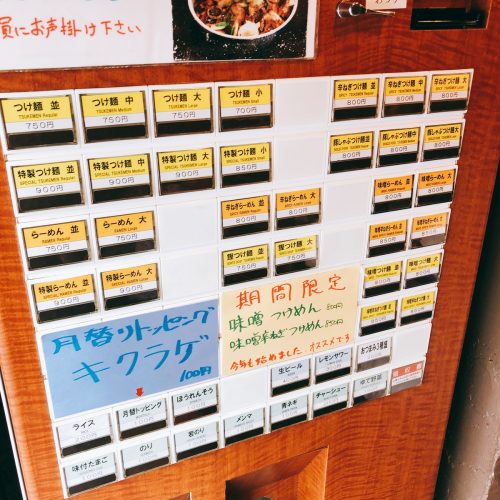 員にお声掛け下さい
つけ麺 並
TSUKEMEN Regular
750円
つけ麺 中
TSUKEMEN Medium
750円
つけ麺 大
TSUKEMEN Large
750円
つけ麺 小
TSUKEMEN Small
700円
辛ねぎつけ麺 並
800円
辛ねぎつけ麺 中
800円
辛ねぎつけ麺 大
800円
特製つけ麺 並
SPECIAL TSUKEMEN Regular
900円
特製つけ麺 中
SPECIAL TSUKEMEN Medium
900円
特製つけ麺 大
SPECIAL TSUKEMEN Large
900円
特製つけ麺 小
SPECIAL TSUKEMEN Small
850円
豚しゃぶつけ麺 並
800円
豚しゃぶつけ麺 中
800円
豚しゃぶつけ麺 大
800円
らーめん 並
RAMEN Regular
750円
らーめん 大
RAMEN Large
750円
辛ねぎらーめん 並
850円
辛ねぎらーめん 大
850円
味噌らーめん 並
味噌らーめん 大
特製らーめん 並
900円
特製らーめん 大
900円
750円
750円
味噌つけ麺 並
味噌つけ麺 大
期間限定
味噌つけめん 800円
味噌辛ねぎつけめん 850円
今年も始めました。オススメです
月替りトッピング
キクラゲ
100円
ライス
月替トッピング
ほうれんそう
生ビール
レモンサワー
おつまみ3種盛
味付たまご
のり
岩のり
メンマ
青ネギ
チャーシュー
ゆで野菜